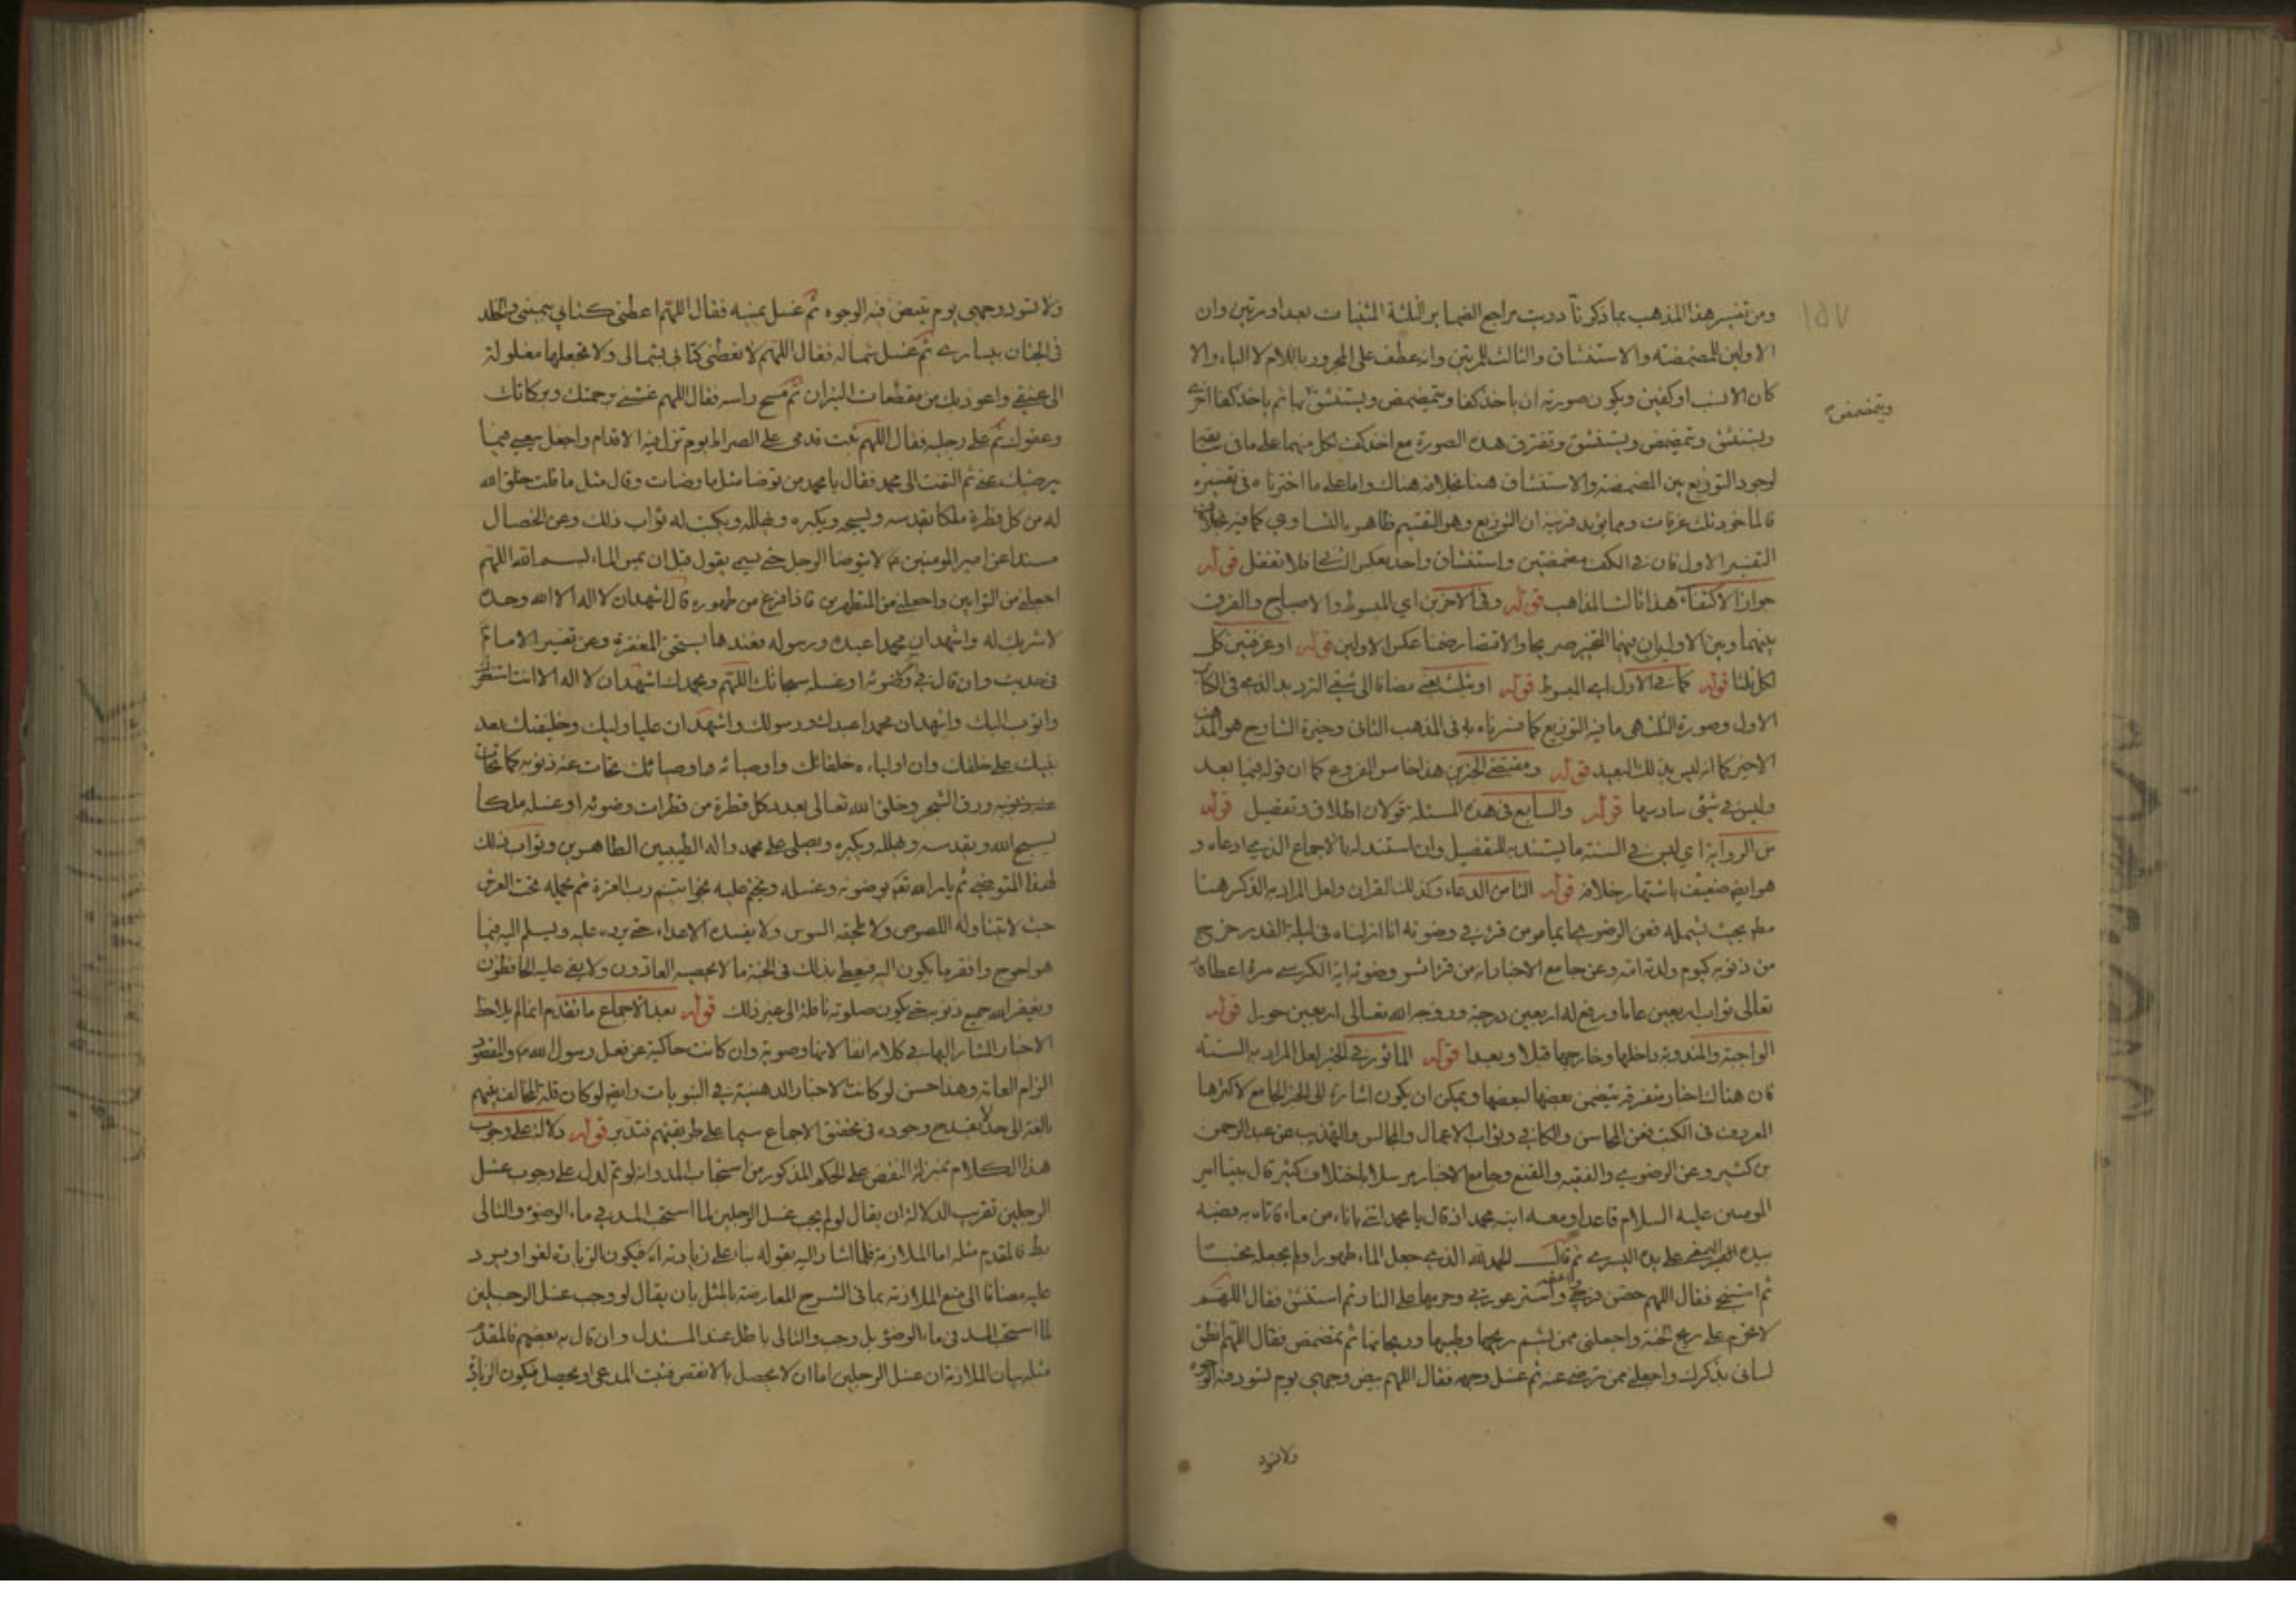 ومن تفسير هذا المذهب بما ذكرنا دريت مراجع الضماير الثلثة المثنيات بعد او مرتين وان
الاولين للمضمضة والاستنشاق والثالث للمرتين وانه عطف على المجرور باللام لا الباء والا
كان الانسب او كفين ويكون صورته ان ياخذ كفا ويتمضمض ويستنشق بها ثم ياخذ كفا اخرى
ويتمضمض
ويستنشق ويتمضمض ويستنشق وتفترق هذه الصورة مع اخذ كف لكل منهما على ما في
لوجود التوزيع بين المضمضة والاستنشاق هنا بخلافه هناك واما على ما اخترناه في تفسيره
فالماخوذ ثلث غرفات ومما يؤيد قرينة ان التوزيع وهو التقسيم ظاهر بالتساوي كما فيه بخلاف
التفسير الاول فان في الكف مضمضتين واستنشاق واحد بعكس الثاني فلا تغفل قوله
جواز الاكتفاء هذا ثالث المذاهب قوله وفي الاخرين اي المبسوط والاصباح والفرق
بينهما وبين الاولين ان فيهما التخيير صريحا والاقتصار ضمنا عكس الاولين قوله او غرفتين كل
لكل ثلثا قوله كما في الاول اي المبسوط قوله او بثلث يعني مضافا الى شقي الترديد الذي في الكتاب
الاول وصورة الثلث هي ما فيه التوزيع كما فسرناه به في المذهب الثاني وخيرة الشارح هو المذهب
الاخير كما انه ليس بذلك البعيد قوله ومقتضى الخبرين هذا خامس الفروع كما ان قوله فيما بعد
وليس في شئ سادسها قوله والسابع في هذه المسئلة قولان اطلاق وتفصيل قوله
من الرواية اي ليس في السنة ما يستند به للتفصيل وان استند له بالاجماع الذي ادعاه و
هو ايضا ضعيف باشتهار خلافه قوله الثامن الدعاء وكذلك القران ولعل المراد به الذكر هنا
مط بحيث يشمله فعن الرضوي ايما مومن قرء في وضوئه انا انزلناه في ليلة القدر خرج
من ذنوبه كيوم ولدته امه وعن جامع الاخبار انه من قرء اثر وضوئه اية الكرسي مرة اعطاه
تعالى ثواب اربعين عاما ورفع له اربعين درجة وزوجه الله تعالى اربعين حورا قوله
الواجبة والمندوبة داخلها وخارجها قبلا وبعدا قوله الماثور في الخبر لعل المراد به السنة
فان هناك اخبار متفرقة يتضمن بعضها لبعضها ويمكن ان يكون اشارة الى الخبر الجامع لاكثرها
المعروف في الكتب فعن المحاسن والكافي وثواب الاعمال والمجالس والتهذيب عن عبد الرحمن
بن كثير وعن الرضوي والفقيه والمقنع وجامع الاخبار مرسلا باختلاف كثير قال بينا امير
المومنين عليه السلام قاعد ومعه ابنه محمد اذ قال يا محمد ائتني باناء من ماء فاتاه به فصبه
بيده اليمنى على يده اليسرى ثم قال الحمد لله الذي جعل الماء طهورا ولم يجعله نجسا
ثم استنجى فقال اللهم حصن فرجي واعفه واستر عورتي وحرمها على النار ثم استنشق فقال اللهم
لا تحرم علي ريح الجنة واجعلني ممن يشم ريحها وطيبها وريحانها ثم تمضمض فقال اللهم انطق
لساني بذكرك واجعلني ممن ترضى عنه ثم غسل وجهه فقال اللهم بيض وجهي يوم تسود فيه الوجوه
ولا تسود
ولا تسود وجهي يوم تبيض فيه الوجوه ثم غسل يمينه فقال اللهم اعطني كتابي بيميني والخلد
في الجنان بيساري ثم غسل شماله فقال اللهم لا تعطني كتابي بشمالي ولا تجعلها مغلولة
الى عنقي واعوذ بك من مقطعات النيران ثم مسح راسه فقال اللهم غشني برحمتك وبركاتك
وعفوك ثم على رجليه فقال اللهم ثبت قدمي على الصراط يوم تزل فيه الاقدام واجعل سعيي فيما
يرضيك عني ثم التفت الى محمد فقال يا محمد من توضا مثل ما وضات وقال مثل ما قلت خلق الله
له من كل قطرة ملكا يقدسه ويسبحه ويكبره ويهلله ويكتب له ثواب ذلك وعن الخصال
مسندا عن امير المومنين ع لا يتوضا الرجل حتى يسمي يقول قبل ان يمس الماء بسم الله اللهم
اجعلني من التوابين واجعلني من المتطهرين فاذا فرغ من طهوره قال اشهد ان لا اله الا الله وحده
لا شريك له واشهد ان محمدا عبده ورسوله فعندها يستحق المغفرة وعن تفسير الامام
في حديث وان قال في وضوئه او غسله سبحانك اللهم وبحمدك اشهد ان لا اله الا انت استغفرك
واتوب اليك واشهد ان محمدا عبدك ورسولك واشهد ان عليا وليك وخليفتك بعد
نبيك على خلقك وان اولياءه خلفائك واوصيائه اوصيائك تحاتت عنه ذنوبه كما تحات
ورق الشجر وخلق الله تعالى بعدد كل قطرة من قطرات وضوئه او غسله ملكا
يسبح الله ويقدسه ويهلله ويكبره ويصلي على محمد واله الطيبين الطاهرين وثواب ذلك
لهذا المتوضي ثم يامر الله تعم بوضوئه وغسله ويختم عليه بخواتيم رب العزة ثم يحمله تحت العرش
حيث لا تتناوله اللصوص ولا يلحقه السوس ولا يفسده الاعداء حتى يرده عليه ويسلم اليه فيما
هو احوج وافقر ما يكون اليه فيعطى بذلك في الجنة ما لا يحصيه العادون ولا يعي عليه الحافظون
ويغفر الله جميع ذنوبه حتى يكون صلوته نافلة الى غير ذلك قوله بعد الاجماع ما تقدم انما لم يلاحظ
الاخبار المشار اليها في كلامه انفا لانها وصوية وان كانت حاكية عن فعل رسول الله ص والمقصود
الزام العامة وهذا حسن لو كانت الاخبار في النبويات وايضا لو كان قلة المخالف فيهم
بالغة الى حد لا يقدح وجوده في تحقق الاجماع سيما على طريقتهم فتدبر قوله دلالة على وجوب
هذا الكلام بمنزلة النقض على الحكم المذكور من استحباب المد وانه لو تم لدل على وجوب غسل
الرجلين تقريب الدلالة ان يقال لو لم يجب غسل الرجلين لما استحب المد في ماء الوضوء والتالي
بط فالمقدم مثله اما الملازمة فلما اشار اليه بقوله بناء على زيادته اه فيكون الزيادة لغوا ويرد
عليه مضافا الى منع الملازمة بما في الشرح للمعارضة بالمثل بان يقال لو وجب غسل الرجلين
لما استحب المد في ماء الوضوء بل وجب والتالي باطل عند المستدل وان قال به بعضهم فالمقدم
مثله بيان الملازمة ان غسل الرجلين اما ان لا يحصل بالانقص فثبت المدعى او يحصل فيكون الزيادة